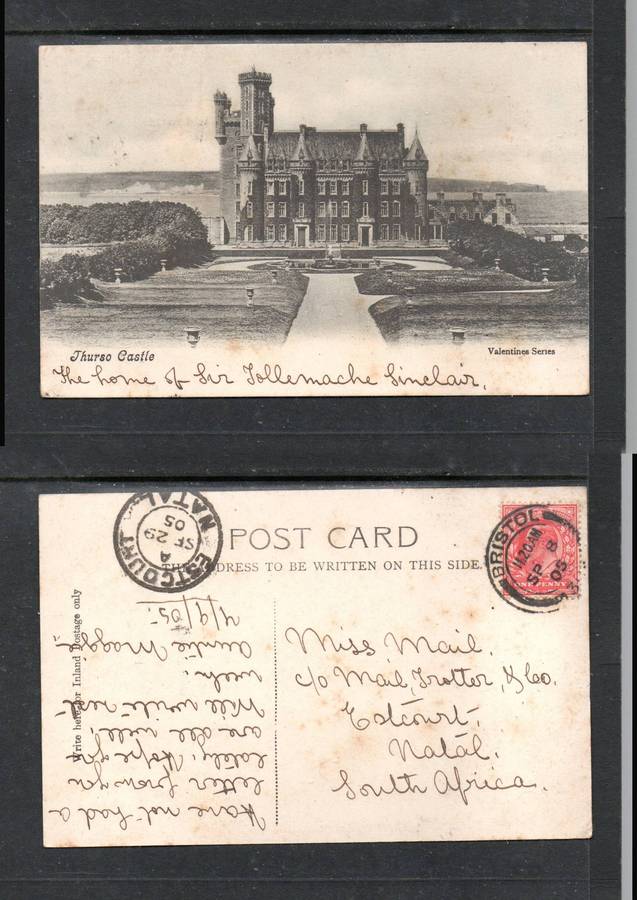 Thurso Castle
Valentines Series
The home of Sir Tollemache Sinclair.
POST CARD
THE ADDRESS TO BE WRITTEN ON THIS SIDE.
ESTCOURT NATAL
A
SP 29
05
BRISTOL
11.20AM
SP 8
05
ONE PENNY
Write here for Inland Postage only
Have not had a
letter from you
lately, Hope you
are all well.
Will write next
week.
Auntie Maggie.
4/9/05.
Miss Mail,
c/o Mail, Trotter, & Co.
Estcourt,
Natal,
South Africa.